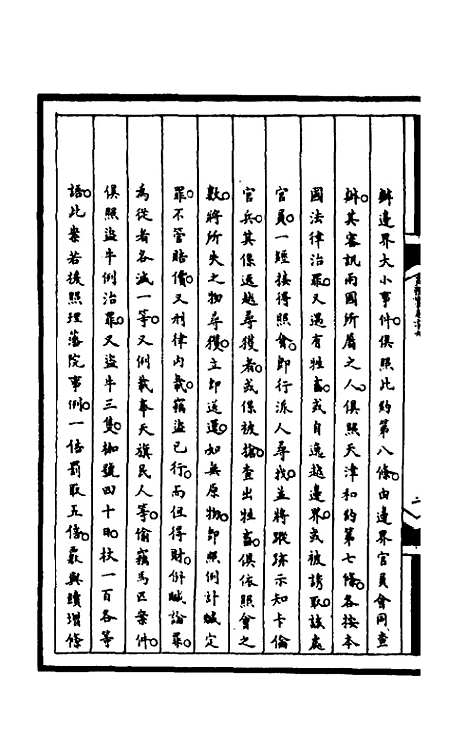 辦邊界大小事件俱照此約第八條由邊界官員會同查
辦其審訊兩國所屬之人俱照天津和約第七條各按本
國法律治罪又遇有牲畜或自逸越邊界或被誘取該處
官員一經接得照會即行派人尋找並將蹤跡示知卡倫
官兵其係逸越尋獲者或係被搶查出牲畜俱依照會之
數將所失之物尋獲立即送還如無原物即照例計贓定
罪不管賠償又刑律內載竊盜已行而但得財併贓論罪
為從者各減一等又例載奉天旗民人等偷竊馬匹案件
俱照盜牛例治罪又盜牛三隻枷號四十日杖一百各等
語此案若援照理藩院事例一倍罰取五倍核與續增條